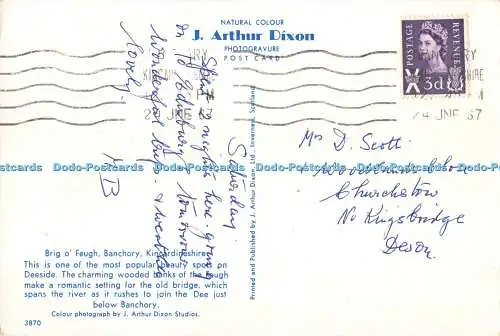 NATURAL COLOUR
J. Arthur Dixon
PHOTOGRAVURE
POST CARD
POSTAGE
REVENUE
3d
24 JNE 67
24 JNE 67
Saturday.
Spent 2 nights here. going
on to Edinburgh tomorrow
Wonderful & weather
lovely.
MB
Mrs D. Scott.
Churchstow
Nr Kingsbridge
Devon.
Printed and Published by J. Arthur Dixon Ltd., Inverness, Scotland.
Dodo-Postcards Dodo-Postcards Dodo-Postcards Dodo-Postcards Dodo-Postcards
Brig o' Feugh, Banchory, Kincardineshire
This is one of the most popular beauty spots on
Deeside. The charming wooded banks of the Feugh
make a romantic setting for the old bridge, which
spans the river as it rushes to join the Dee just
below Banchory.
Colour photograph by J. Arthur Dixon Studios.
3870